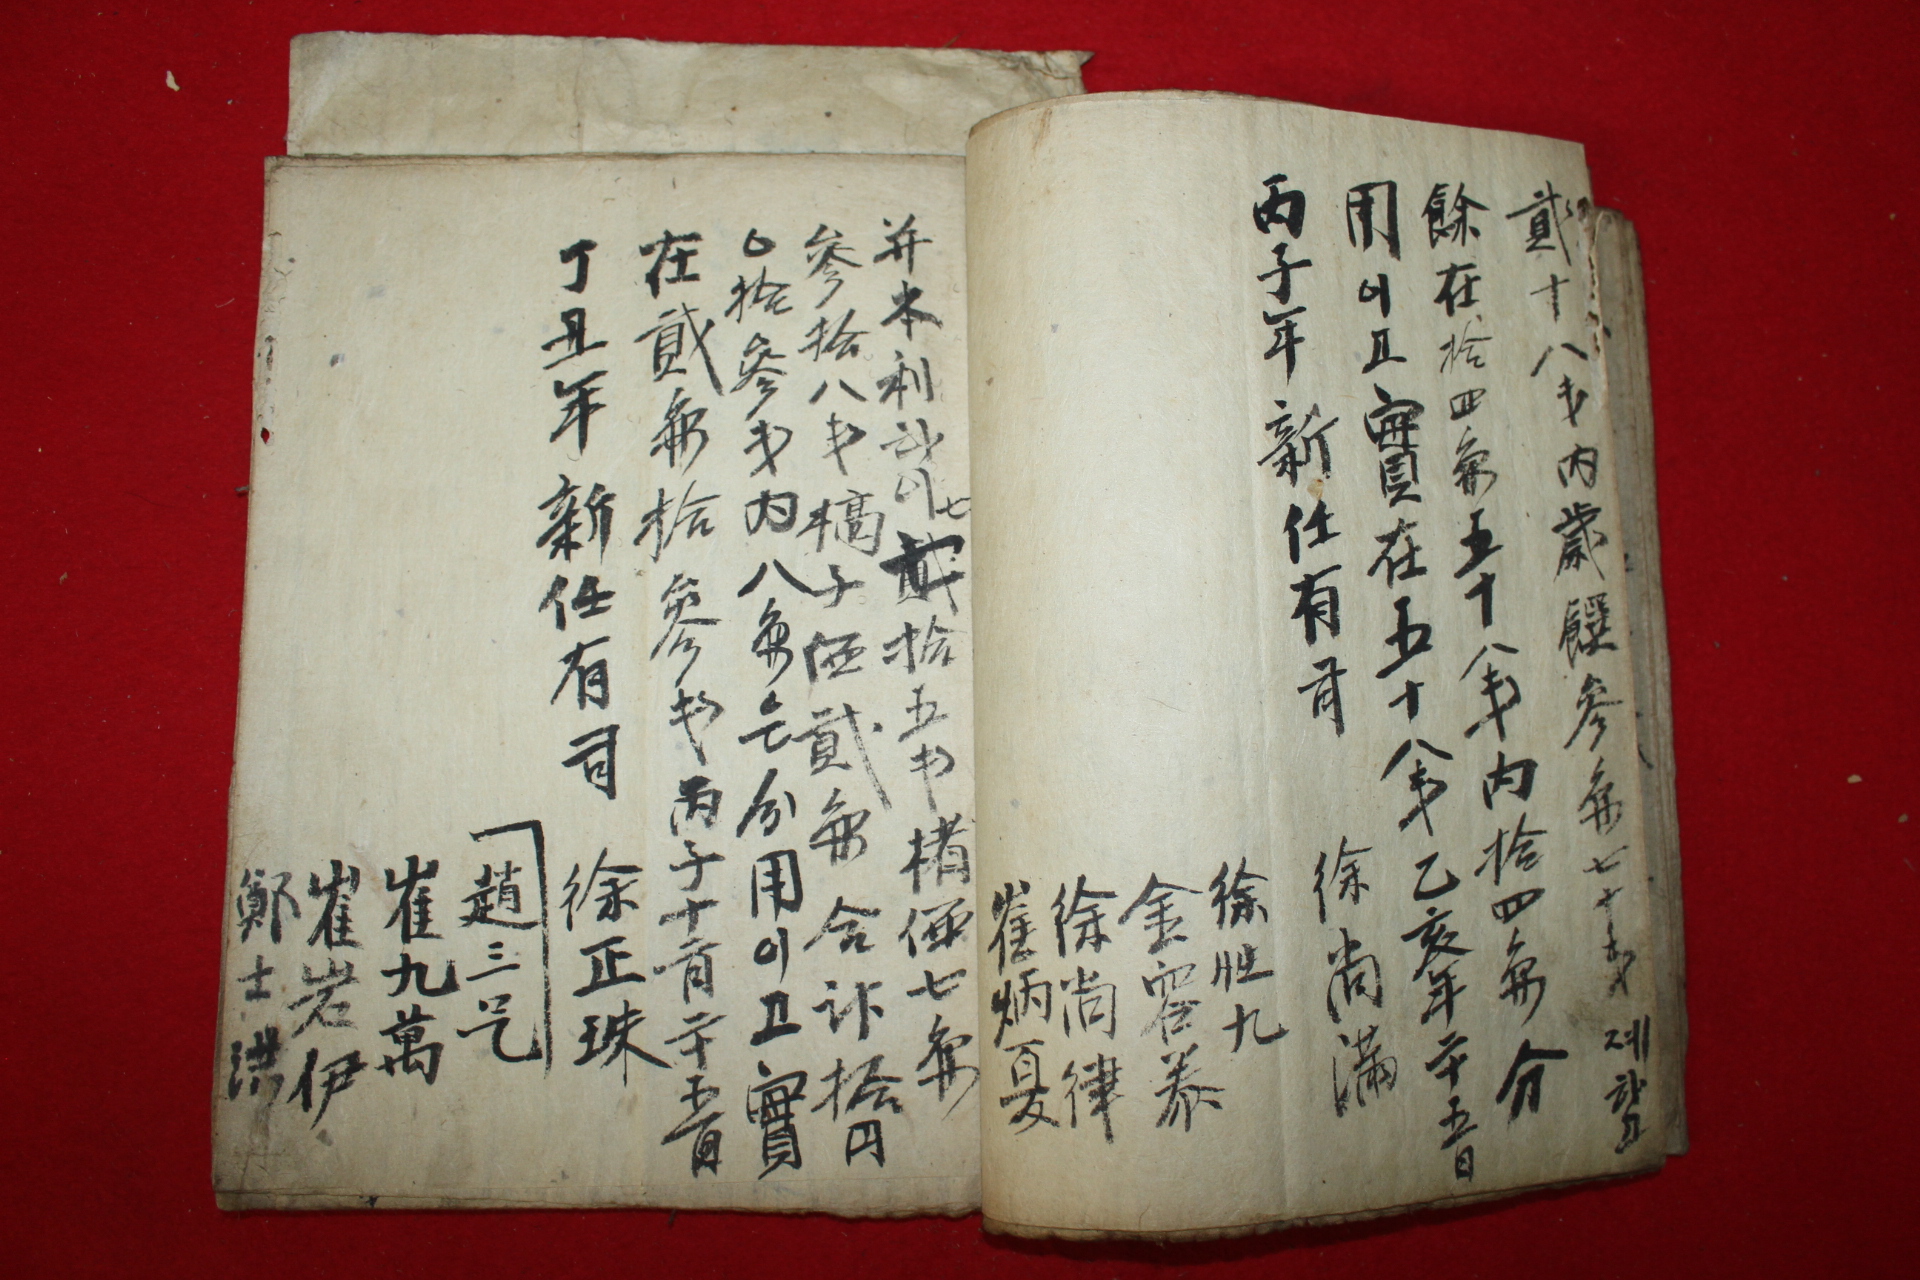 貳十八戔內歲饌參兩七十戔 제하고
餘在拾四兩五十八戔內拾四兩分
用이고實在五十八戔乙亥年十二月五日
丙子年新任有司 徐尚滿
徐壯九
金容泰
徐尚律
崔炳夏
并本利 七貳拾五戔楮価七兩
參拾八戔 槁子価貳兩合計拾円
拾參戔內八兩 分用이고實
在貳兩拾參戔丙子十二月十五日
丁丑年新任有司 徐正珠
趙三
崔九萬
崔岩伊
鄭士洪